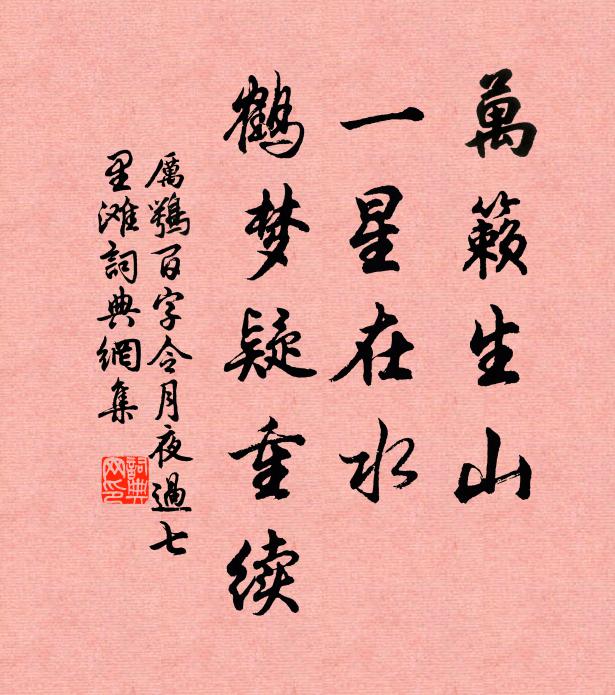 萬籟生山
一星在水
鶴梦疑重续
厲鶚百字令月夜過七
里滩詞典網集
詞典网印